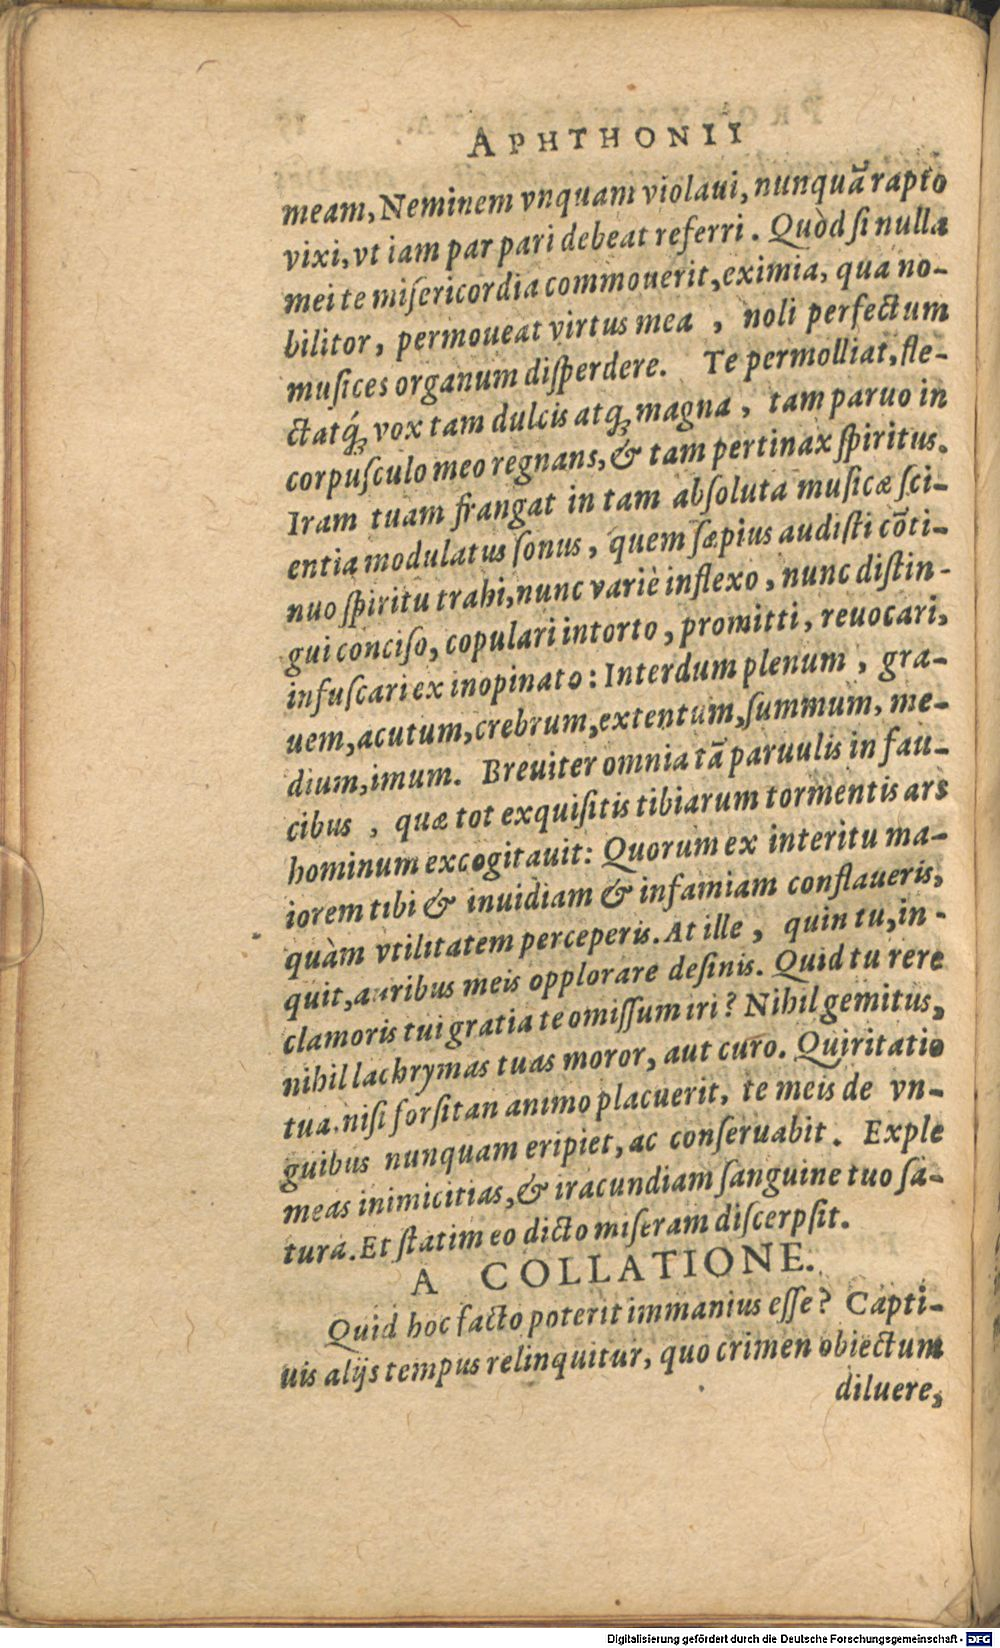 APHTHONII
meam, Neminem vnquam violaui, nunquā rapto
vixi, vt iam par pari debeat referri. Quòd ſi nulla
mei te miſericordia commouerit, eximia, qua no-
bilitor, permoueat virtus mea, noli perfectum
muſices organum diſperdere. Te permolliat, fle-
ctatq́ꝫ vox tam dulcis atqꝫ magna, tam paruo in
corpuſculo meo regnans, & tam pertinax ſpiritus.
Iram tuam frangat in tam abſoluta muſicæ ſci-
entia modulatus ſonus, quem ſæpius audiſti cōti-
nuo ſpiritu trahi, nunc variè inflexo, nunc diſtin-
gui conciſo, copulari intorto, promitti, reuocari,
infuſcari ex inopinato: Interdum plenum, gra-
uem, acutum, crebrum, extentum, ſummum, me-
dium, imum. Breuiter omnia tā paruulis in fau-
cibus, quæ tot exquiſitis tibiarum tormentis ars
hominum excogitauit: Quorum ex interitu ma-
iorem tibi & inuidiam & infamiam conflaueris,
quàm vtilitatem perceperis. At ille, quin tu, in-
quit, auribus meis opplorare deſinis. Quid tu rere
clamoris tui gratia te omiſſum iri? Nihil gemitus,
nihil lachrymas tuas moror, aut curo. Quiritatio
tua. niſi forſitan animo placuerit, te meis de vn-
guibus nunquam eripiet, ac conſeruabit. Exple
meas inimicitias, & iracundiam ſanguine tuo ſa-
tura. Et ſtatim eo dicto miſeram diſcerpſit.
A COLLATIONE.
Quid hoc facto poterit immanius eſſe? Capti-
uis alijs tempus relinquitur, quo crimen obiectum
diluere,
Digitalisierung gefördert durch die Deutsche Forschungsgemeinschaft - DFG